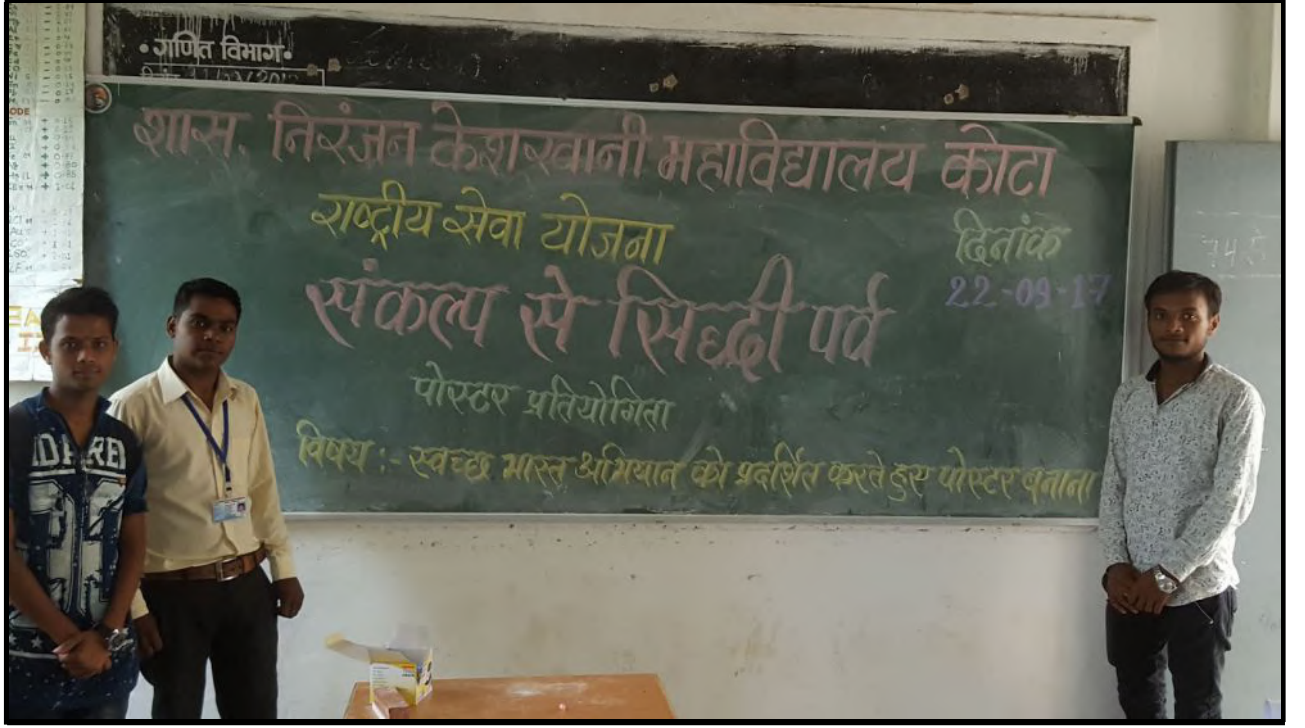 • गणित विभाग •
शास. निरंजन केशरवानी महाविद्यालय कोटा
राष्ट्रीय सेवा योजना
दिनांक
22-09-17
संकल्प से सिद्धी पर्व
पोस्टर प्रतियोगिता
विषय :- स्वच्छ भारत अभियान को प्रदर्शित करते हुए पोस्टर बनाना